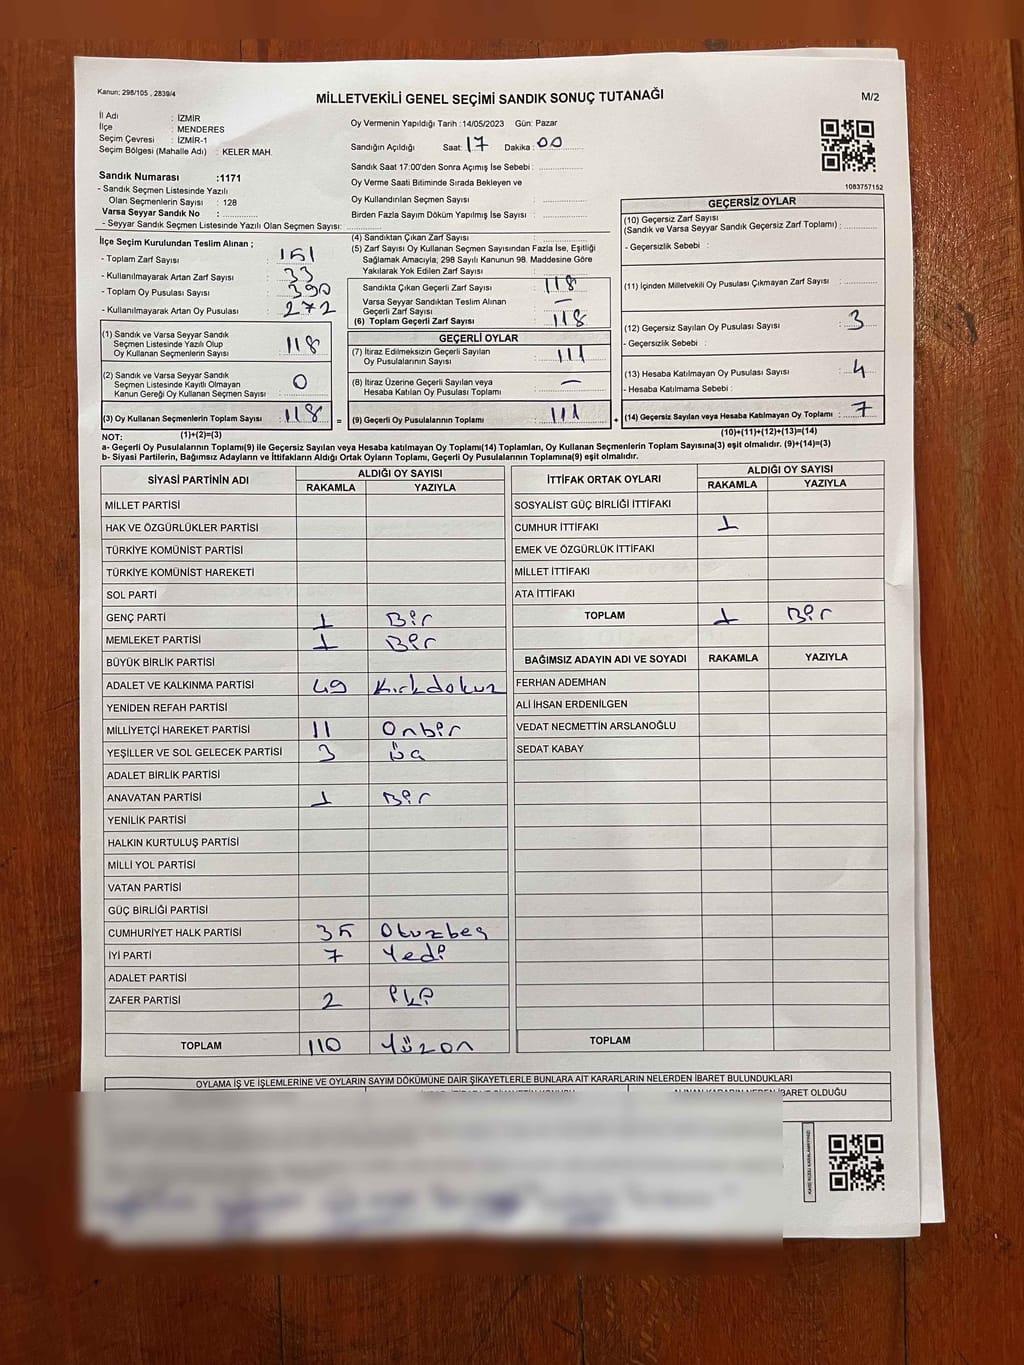 Kanun; 298/105 , 2839/4
MİLLETVEKİLİ GENEL SEÇİMİ SANDIK SONUÇ TUTANAĞI
M/2
İl Adı : İZMİR
İlçe : MENDERES
Seçim Çevresi : İZMİR-1
Seçim Bölgesi (Mahalle Adı) : KELER MAH.
Oy Vermenin Yapıldığı Tarih :14/05/2023 Gün: Pazar
Sandığın Açıldığı Saat: 17 Dakika: 00
Sandık Saat 17:00'den Sonra Açımış İse Sebebi :
Oy Verme Saati Bitiminde Sırada Bekleyen ve
Oy Kullandırılan Seçmen Sayısı :
Birden Fazla Sayım Döküm Yapılmış İse Sayısı :
1083757152
Sandık Numarası :1171
- Sandık Seçmen Listesinde Yazılı
Olan Seçmenlerin Sayısı : 128
Varsa Seyyar Sandık No :
- Seyyar Sandık Seçmen Listesinde Yazılı Olan Seçmen Sayısı:
İlçe Seçim Kurulundan Teslim Alınan ;
- Toplam Zarf Sayısı : 151
- Kullanılmayarak Artan Zarf Sayısı : 33
- Toplam Oy Pusulası Sayısı : 390
- Kullanılmayarak Artan Oy Pusulası : 272
(1) Sandık ve Varsa Seyyar Sandık
Seçmen Listesinde Yazılı Olup
Oy Kullanan Seçmenlerin Sayısı : 118
(2) Sandık ve Varsa Seyyar Sandık
Seçmen Listesinde Kayıtlı Olmayan
Kanun Gereği Oy Kullanan Seçmen Sayısı : 0
(3) Oy Kullanan Seçmenlerin Toplam Sayısı : 118
(1)+(2)=(3)
(4) Sandıktan Çıkan Zarf Sayısı :
(5) Zarf Sayısı Oy Kullanan Seçmen Sayısından Fazla İse, Eşitliği
Sağlamak Amacıyla; 298 Sayılı Kanunun 98. Maddesine Göre
Yakılarak Yok Edilen Zarf Sayısı :
Sandıkta Çıkan Geçerli Zarf Sayısı : 118
Varsa Seyyar Sandıktan Teslim Alınan
Geçerli Zarf Sayısı : —
(6) Toplam Geçerli Zarf Sayısı : 118
GEÇERLİ OYLAR
(7) İtiraz Edilmeksizin Geçerli Sayılan
Oy Pusulalarının Sayısı : 111
(8) İtiraz Üzerine Geçerli Sayılan veya
Hesaba Katılan Oy Pusulası Toplamı : —
= (9) Geçerli Oy Pusulalarının Toplamı : 111 +
GEÇERSİZ OYLAR
(10) Geçersiz Zarf Sayısı
(Sandık ve Varsa Seyyar Sandık Geçersiz Zarf Toplamı) :
- Geçersizlik Sebebi :
(11) İçinden Milletvekili Oy Pusulası Çıkmayan Zarf Sayısı :
(12) Geçersiz Sayılan Oy Pusulası Sayısı : 3
- Geçersizlik Sebebi :
(13) Hesaba Katılmayan Oy Pusulası Sayısı : 4
- Hesaba Katılmama Sebebi :
(14) Geçersiz Sayılan veya Hesaba Katılmayan Oy Toplamı : 7
(10)+(11)+(12)+(13)=(14)
NOT:
a- Geçerli Oy Pusulalarının Toplamı(9) ile Geçersiz Sayılan veya Hesaba katılmayan Oy Toplamı(14) Toplamları, Oy Kullanan Seçmenlerin Toplam Sayısına(3) eşit olmalıdır. (9)+(14)=(3)
b- Siyasi Partilerin, Bağımsız Adayların ve İttifakların Aldığı Ortak Oyların Toplamı, Geçerli Oy Pusulalarının Toplamına(9) eşit olmalıdır.
SİYASİ PARTİNİN ADI ALDIĞI OY SAYISI
RAKAMLA YAZIYLA
MİLLET PARTİSİ
HAK VE ÖZGÜRLÜKLER PARTİSİ
TÜRKİYE KOMÜNİST PARTİSİ
TÜRKİYE KOMÜNİST HAREKETİ
SOL PARTİ
GENÇ PARTİ 1 Bir
MEMLEKET PARTİSİ 1 Bir
BÜYÜK BİRLİK PARTİSİ
ADALET VE KALKINMA PARTİSİ 49 Kırkdokuz
YENİDEN REFAH PARTİSİ
MİLLİYETÇİ HAREKET PARTİSİ 11 Onbir
YEŞİLLER VE SOL GELECEK PARTİSİ 3 Üç
ADALET BİRLİK PARTİSİ
ANAVATAN PARTİSİ 1 Bir
YENİLİK PARTİSİ
HALKIN KURTULUŞ PARTİSİ
MİLLİ YOL PARTİSİ
VATAN PARTİSİ
GÜÇ BİRLİĞİ PARTİSİ
CUMHURİYET HALK PARTİSİ 35 Otuzbeş
İYİ PARTİ 7 Yedi
ADALET PARTİSİ
ZAFER PARTİSİ 2 İki
TOPLAM 110 Yüzon
İTTİFAK ORTAK OYLARI ALDIĞI OY SAYISI
RAKAMLA YAZIYLA
SOSYALİST GÜÇ BİRLİĞİ İTTİFAKI
CUMHUR İTTİFAKI 1
EMEK VE ÖZGÜRLÜK İTTİFAKI
MİLLET İTTİFAKI
ATA İTTİFAKI
TOPLAM 1 Bir
BAĞIMSIZ ADAYIN ADI VE SOYADI RAKAMLA YAZIYLA
FERHAN ADEMHAN
ALİ İHSAN ERDENİLGEN
VEDAT NECMETTİN ARSLANOĞLU
SEDAT KABAY
TOPLAM
OYLAMA İŞ VE İŞLEMLERİNE VE OYLARIN SAYIM DÖKÜMÜNE DAİR ŞİKAYETLERLE BUNLARA AİT KARARLARIN NELERDEN İBARET BULUNDUKLARI
İBARET OLDUĞU